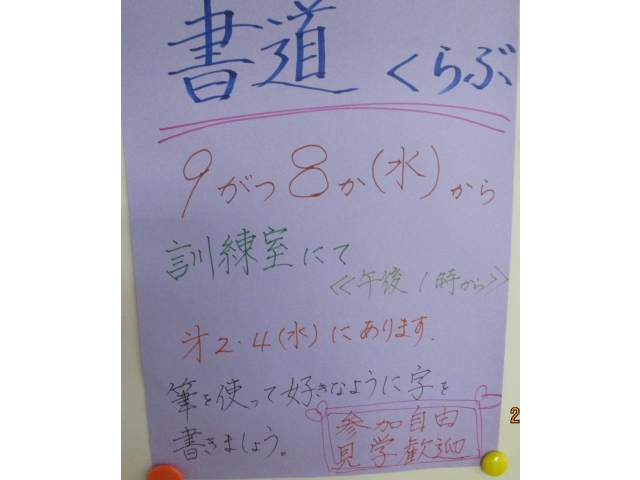 書道 くらぶ
9がつ8か(水)から
訓練室にて
≪午後1時から≫
㐧2・4(水)にあります.
筆を使って好きなように字を
書きましょう。
参加自由
見学歓迎
2